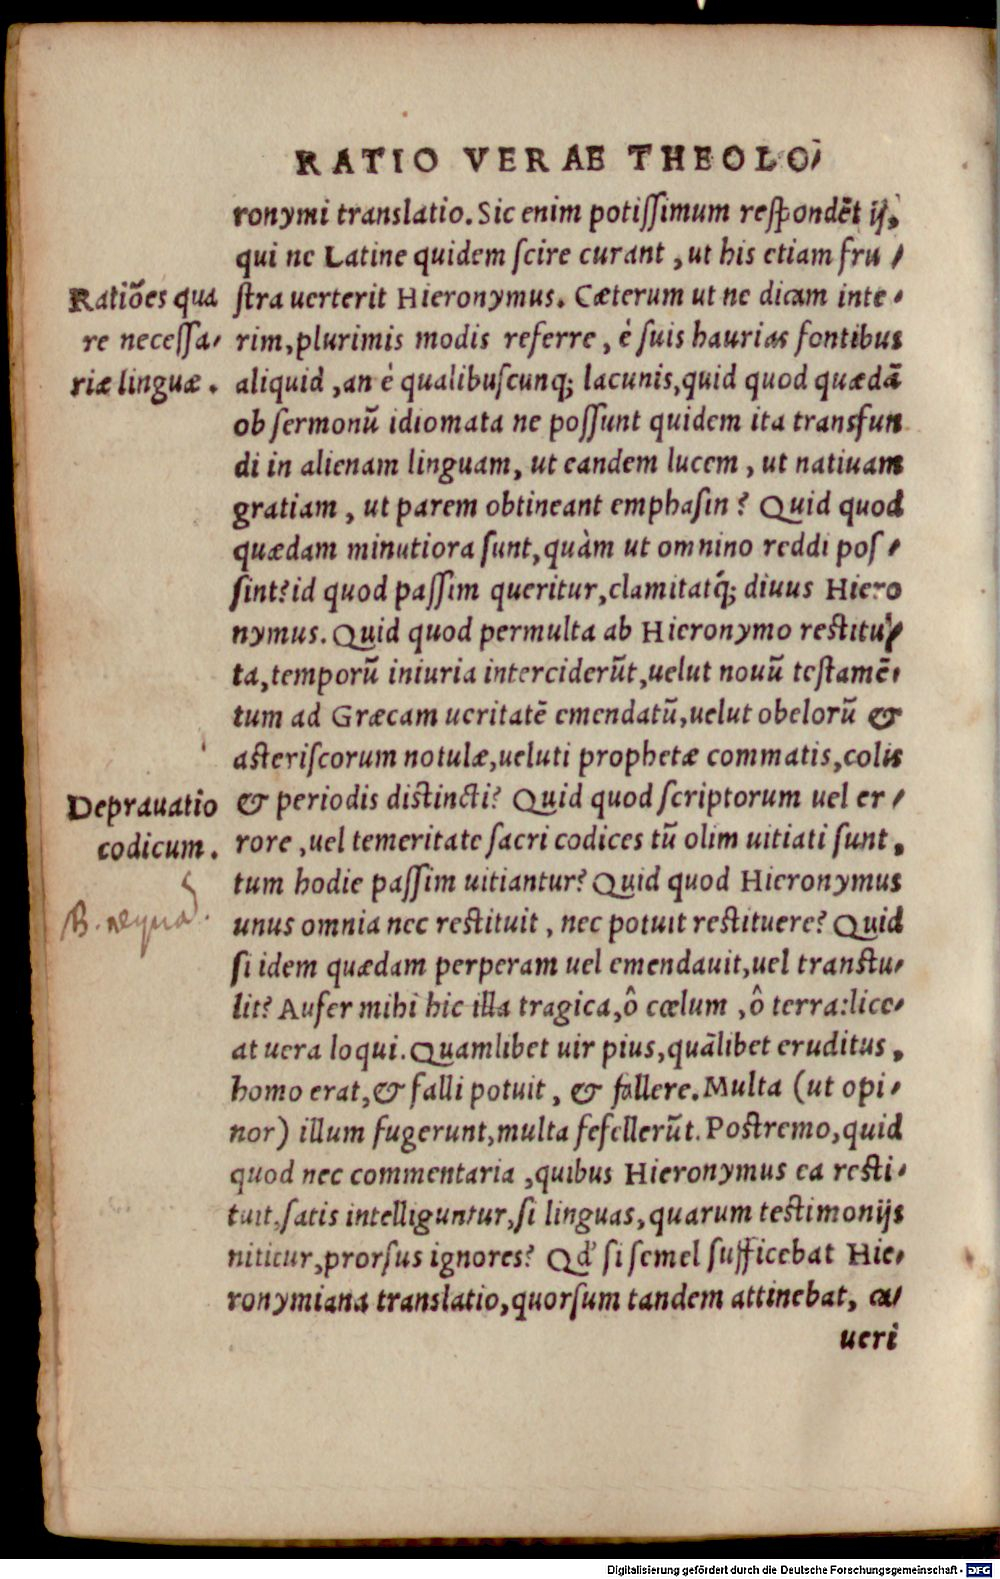 RATIO VERAE THEOLO-
ronymi translatio. Sic enim potissimum respondēt ij,
qui ne Latine quidem scire curant, ut his etiam fru-
stra uerterit Hieronymus. Cæterum ut ne dicam inte-
rim, plurimis modis referre, è suis haurias fontibus
aliquid, an è qualibuscunq; lacunis, quid quod quædā
ob sermonū idiomata ne possunt quidem ita transfun
di in alienam linguam, ut eandem lucem, ut natiuam
gratiam, ut parem obtineant emphasin? Quid quod
quædam minutiora sunt, quàm ut omnino reddi pos-
sint? id quod passim queritur, clamitatq́; diuus Hiero
nymus. Quid quod permulta ab Hieronymo restitu-
ta, temporū iniuria interciderūt, uelut nouū testamē-
tum ad Græcam ueritatē emendatū, uelut obelorū &
asteriscorum notulæ, ueluti prophetæ commatis, colis
& periodis distincti? Quid quod scriptorum uel er-
rore, uel temeritate sacri codices tū olim uitiati sunt,
tum hodie passim uitiantur? Quid quod Hieronymus
unus omnia nec restituit, nec potuit restituere? Quid
si idem quædam perperam uel emendauit, uel transtu-
lit? Aufer mihi hic illa tragica, ô cœlum, ô terra: lice-
at uera loqui. Quamlibet uir pius, quālibet eruditus,
homo erat, & falli potuit, & fallere. Multa (ut opi-
nor) illum fugerunt, multa fefellerūt. Postremo, quid
quod nec commentaria, quibus Hieronymus ea resti-
tuit, satis intelliguntur, si linguas, quarum testimonijs
nititur, prorsus ignores? Qd' si semel sufficebat Hie-
ronymiana translatio, quorsum tandem attinebat, ca-
ueri
Ratiōes qua
re necessa-
riæ linguæ.
Deprauatio
codicum.